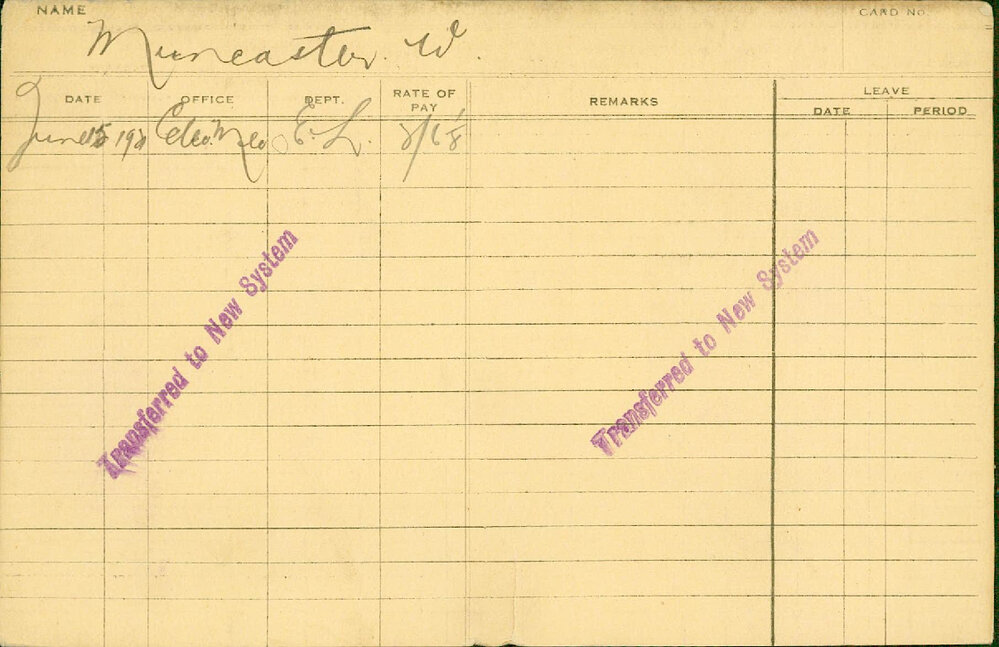 NAME Muncaster. W. CARD NO.
DATE OFFICE DEPT. RATE OF PAY REMARKS LEAVE
DATE PERIOD
June 15 E. L.
Transferred to New System
Transferred to New System